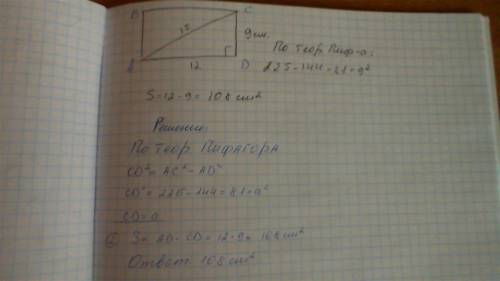 B C
15
9 см.
A 12 D
По теор. Пиф-а:
225-144=81=9²
S=12·9=108 см²
Решение:
По теор. Пифагора
CD²=AC²-AD²
CD²=225-144=81=9²
CD=9
② S=AD·CD=12·9=108 см²
Ответ: 108 см²